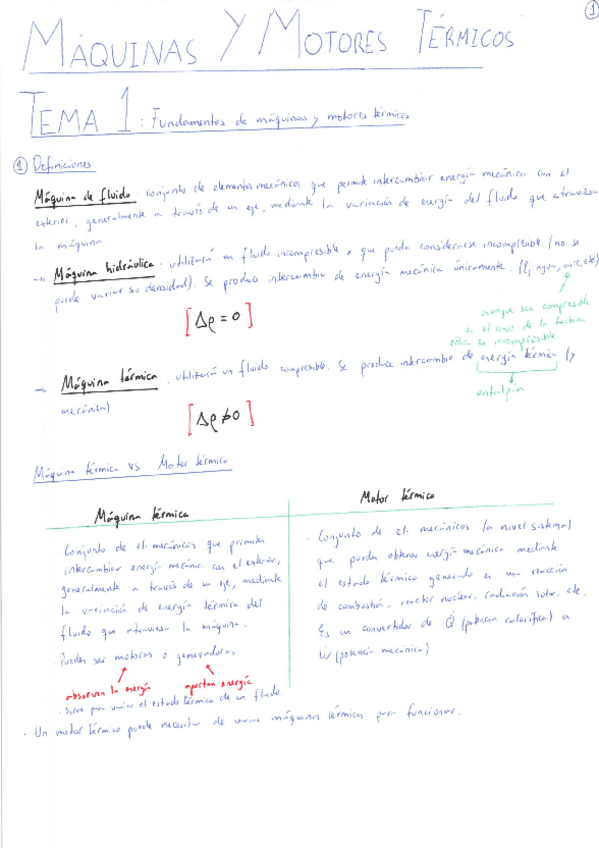 1
MÁQUINAS Y MOTORES TÉRMICOS
TEMA 1: Fundamentos de máquinas y motores térmicos
1 Definiciones
Máquina de fluido: conjunto de elementos mecánicos que permite intercambiar energía mecánica con el
exterior, generalmente a través de un eje, mediante la variación de energía del fluido que atraviesa
la máquina
→ Máquina hidráulica: utilizará un fluido incompresible o que pueda considerarse incompresible (no se
puede variar su densidad). Se produce intercambio de energía mecánica únicamente. (Ej agua, aire, etc)
[Δρ = 0]
aunque sea compresible
en el caso de la turbina
eólica es incompresible
→ Máquina térmica: utilizará un fluido compresible. Se produce intercambio de energía térmica (y
mecánica)
entalpía
[Δρ ≠ 0]
Máquina térmica vs Motor térmico
Máquina térmica
Motor térmico
Conjunto de el. mecánicos que permiten
intercambiar energía mecánica con el exterior,
generalmente a través de un eje, mediante
la variación de energía térmica del
fluido que atraviesa la máquina.
· Pueden ser motoras o generadoras
absorven la energía
aportan energía
· Sirve para variar el estado térmico de un fluido.
· Conjunto de el. mecánicos (a nivel sistema)
que pueden obtener energía mecánica mediante
el estado térmico generado en una reacción
de combustión, reactor nuclear, radiación solar, etc.
Es un convertidor de Q̇ (potencia calorífica) a
Ẇ (potencia mecánica)
· Un motor térmico puede necesitar de varias máquinas térmicas para funcionar.